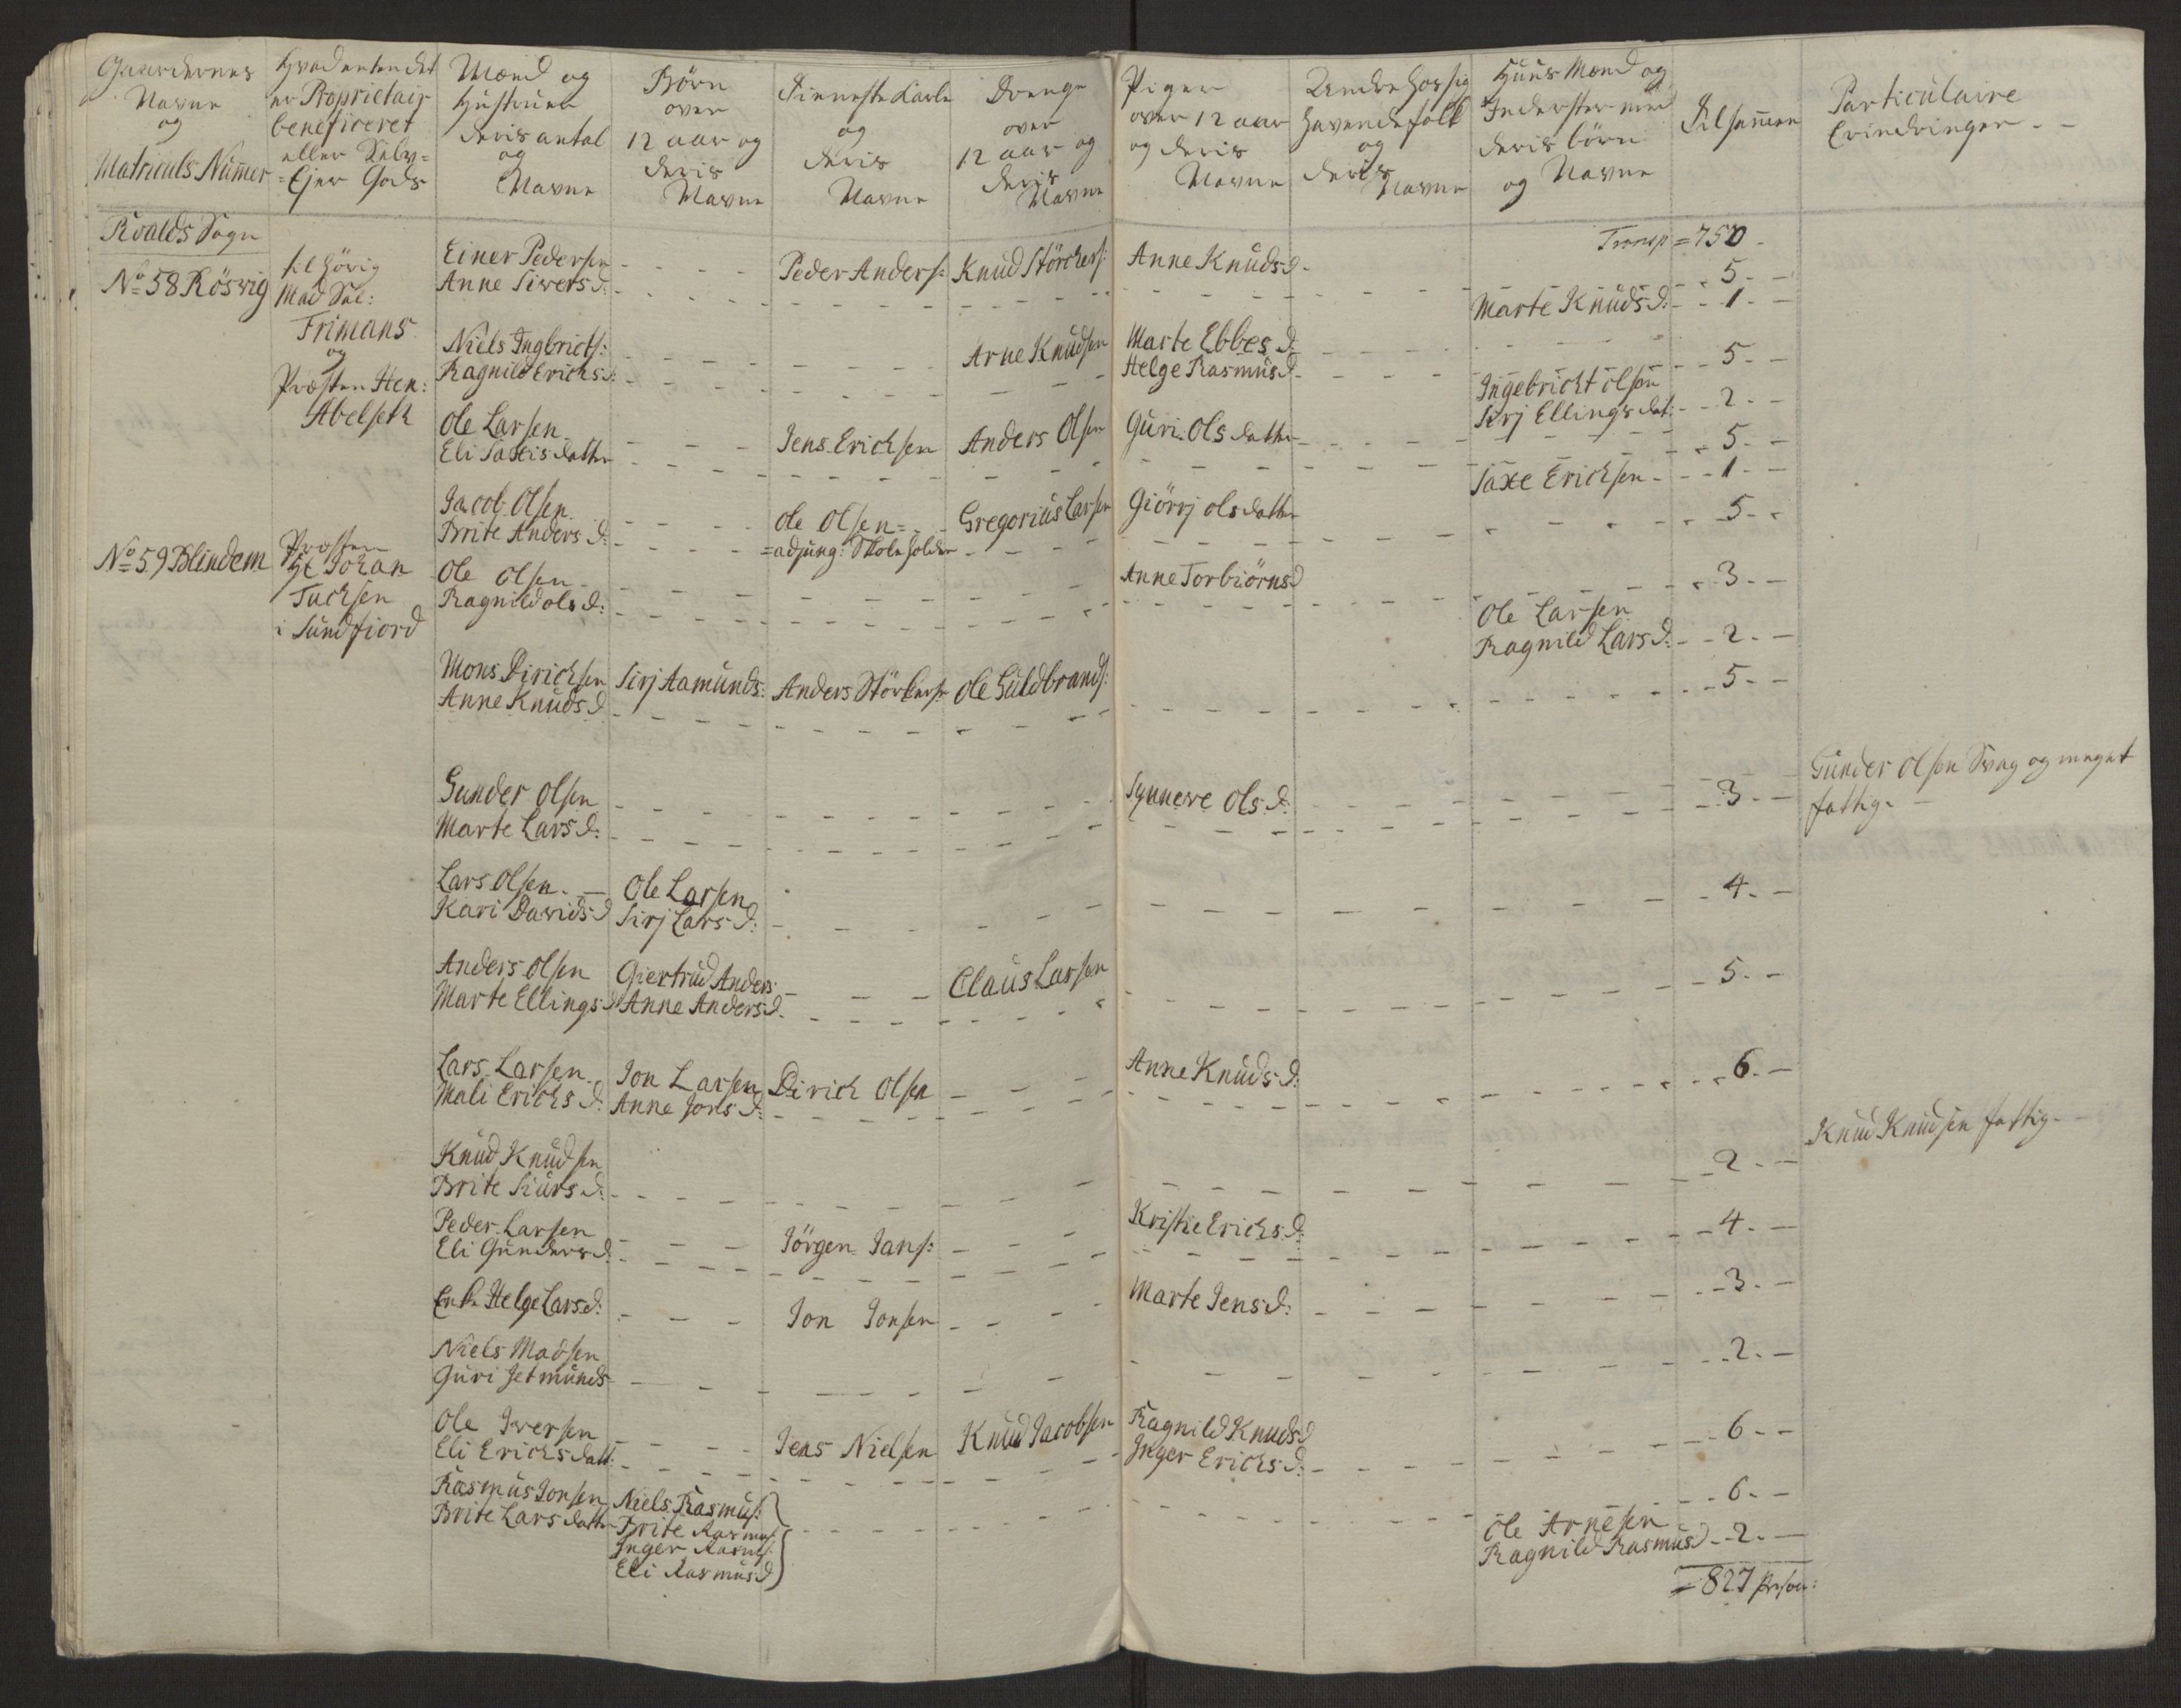 Gaardernes Navne og Matriculs Numer
Hvad enten det er Proprietair beneficeret eller Selv=Ejer Gods
Mænd og Hustruer deris antal og Navne
Börn over 12 aar og deris Navne
Tienneste Karle og deris Navne
Drenge over 12 aar og deris Navne
Piger over 12 aar og deris Navne
Andre hos sig havende folk og deris Navne
Huus Mænd og Inderster med deris börn og Navne
Tilsamen
Particulaire Erindringer. -
Roalds Sogn
Transp = 750 -
No 58 Röswig
tilhörig
Mad Sal:
Frimans
og
Præsten Hen:
Abelseth
Einer Pedersen - - - - Peder Anders: Knud Störckers: Anne Knuds d. - 5 -
Anne Siwers d:
Marte Knuds d: - - 1 -
Niels Ingbricts: - - - - Arne Knudsen Marte Ebbes d: - 5 -
Ragnild Erichs d: - - - - Helge Rasmus d.
Ingebricht olsen
Sirj Ellings dat: - 2 -
Ole Larsen - - - Jens Erichsen Anders Olsen Guri Ols datter - 5 -
Eli Saxis datter
Saxe Erichsen - - 1 -
Jacob Olsen - - - - ole Olsen = Gregorius Larsen Giörrj ols datter - 5 -
Brite Anders d: - - - = adjung: Skoleholder
No 59 Blindem
Præsten
Hr Johan
Tuchsen
i Sundfiord
Ole Olsen - - - - Anne Torbiörns d - 3 -
Ragnild ols d:
Ole Larsen
Ragnild Lars d: - - 2 -
Mons Dirichsen Sirj Aamunds: Anders Störkers: ole Guldbrands: - 5 -
Anne Knuds d
Gunder Olsen - - - - Synnewe Ols d: - 3 - Gunder Olsen Svag og meget
Marte Lars d: fattig. -
Lars Olsen. - Ole Larsen - 4 -
Kari Davids d Sirj Lars d:
Anders Olsen Giertrud Anders - - - Claus Larsen - 5 -
Marte Ellings d Anne Anders d.
Lars Larsen Jon Larsen Dirich Olsen - - - Anne Knuds d: - 6 -
Mali Erichs d: Anne Jons d:
Knud Knudsen - 2 - Knud Knudsen fattig. -
Brite Siurs d:
Peder Larsen - - - Jörgen Jans: - - - Kristie Erichs d: - 4 -
Eli Gunders d:
Enke Helge Lars d: - - - Jon Jonsen - - - Marte Jens d: - 3 -
Niels Madsen - 2 -
Guri Jetmunds
Ole Iversen - - - - Jens Nielsen Knud Jacobsen Ragnild Knuds d - 6 -
Eli Erichs datt: Inger Erichs d:
Rasmus Jonsen Niels Rasmus: - 6 -
Brite Lars datter Brite Rasmus:
Inger Rasmus:
Eli Rasmus d
Ole Arnesen
Ragnild Rasmus d - 2 -
= 827 Person: